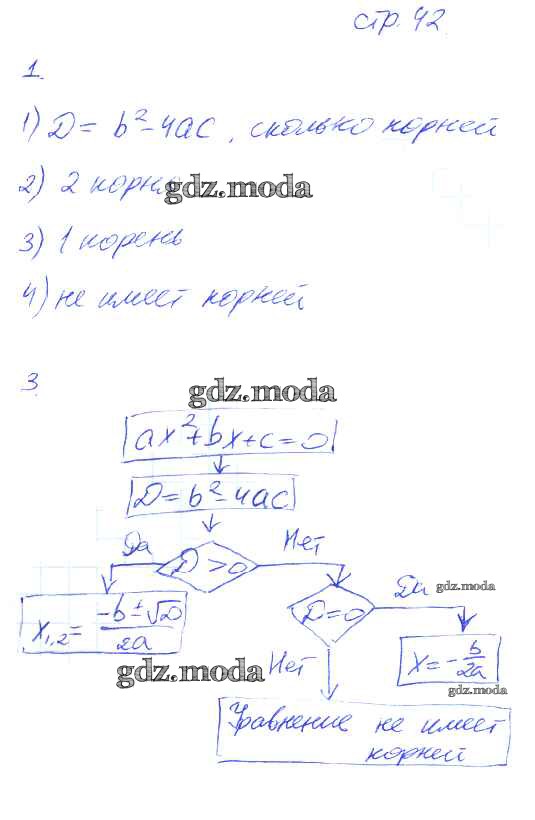 стр. 42
1.
1) D = b² - 4ac, сколько корней
2) 2 корня
gdz.moda
3) 1 корень
4) не имеет корней
3.
gdz.moda
ax² + bx + c = 0
D = b² - 4ac
Да
D > 0
Нет
x₁,₂ = (-b ± √D)/2a
D = 0
Да
gdz.moda
x = - b/2a
gdz.moda
gdz.moda
Нет
Уравнение не имеет
корней